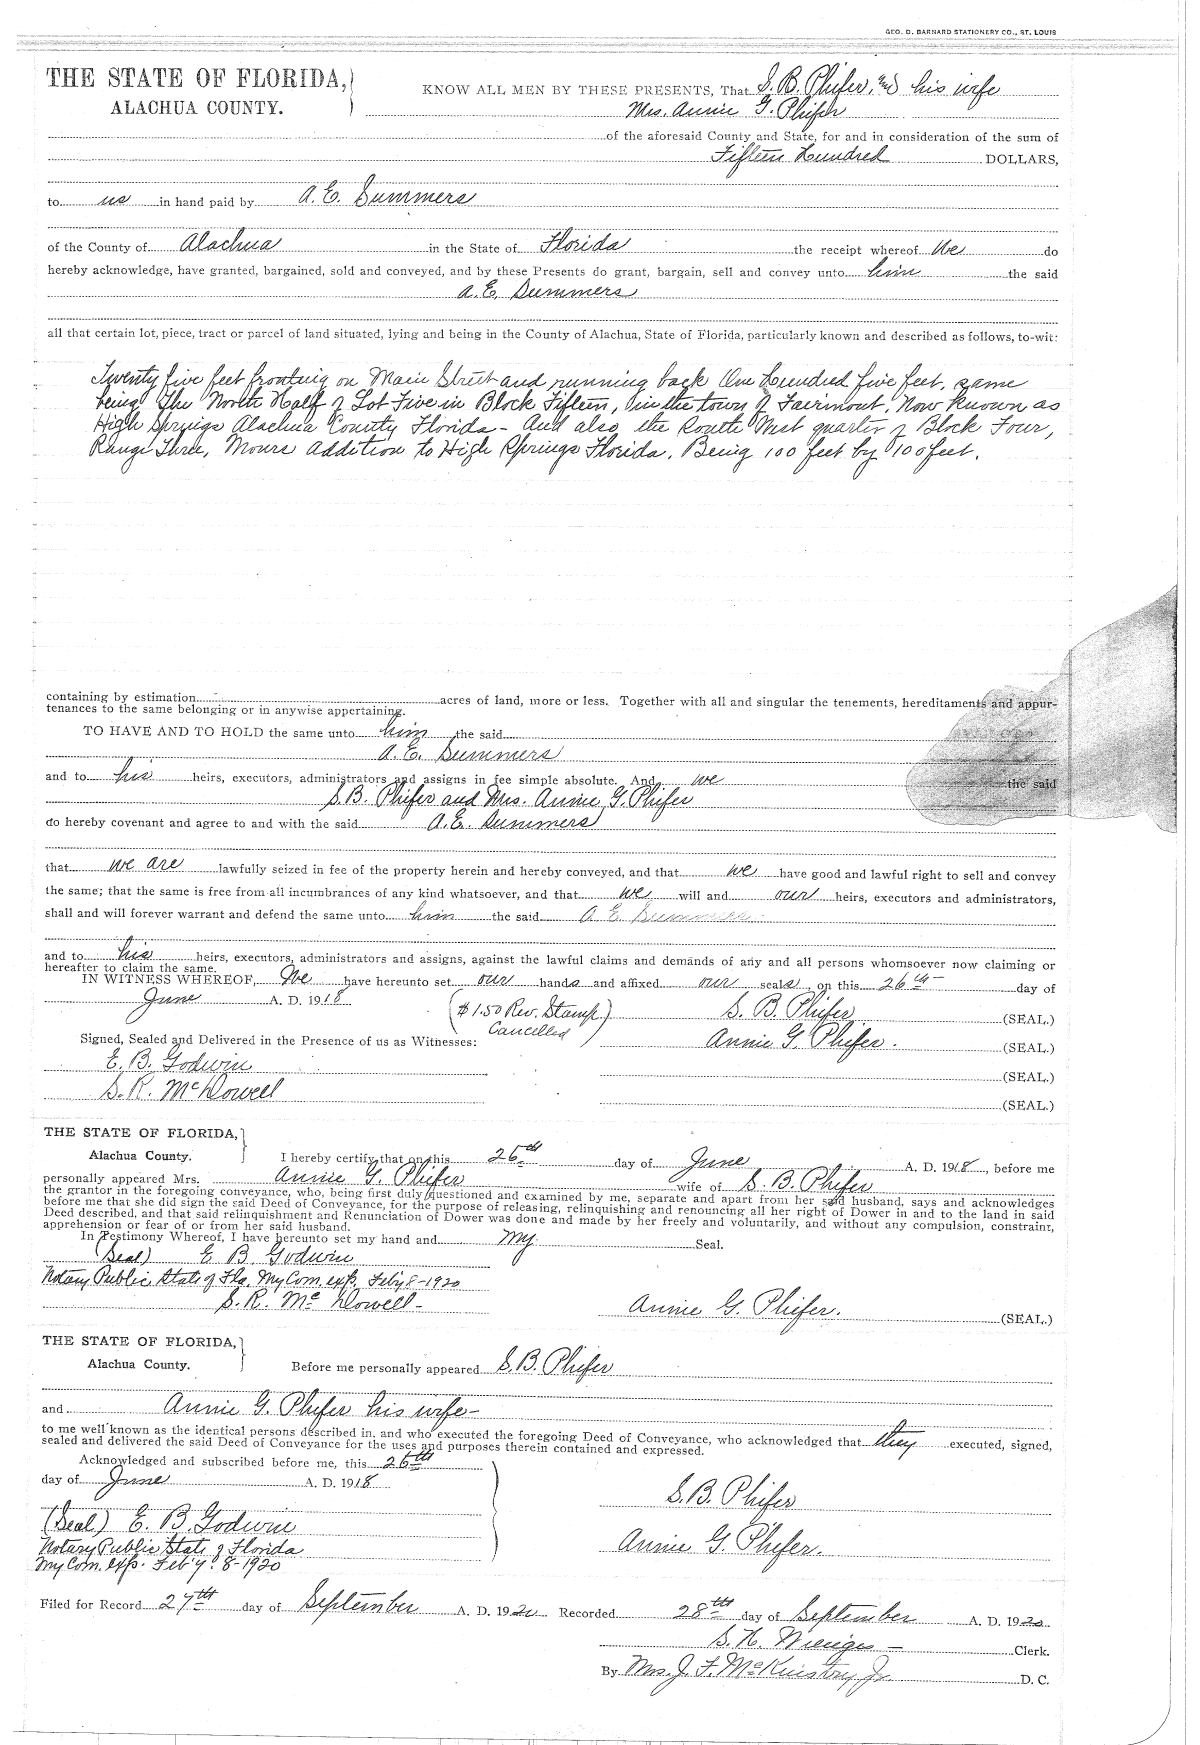 GEO. D. BARNARD STATIONERY CO., ST. LOUIS
THE STATE OF FLORIDA,
ALACHUA COUNTY.
KNOW ALL MEN BY THESE PRESENTS, That S. B. Phifer, and his wife
Mrs. Annie G. Phifer
of the aforesaid County and State, for and in consideration of the sum of
Fifteen Hundred DOLLARS,
to us in hand paid by A. E. Summers
of the County of Alachua in the State of Florida the receipt whereof we do
hereby acknowledge, have granted, bargained, sold and conveyed, and by these Presents do grant, bargain, sell and convey unto him the said
A. E. Summers
all that certain lot, piece, tract or parcel of land situated, lying and being in the County of Alachua, State of Florida, particularly known and described as follows, to-wit:
Twenty five feet fronting on Main Street and running back One Hundred five feet, same
being The North Half of Lot Five in Block Fifteen, in the town of Fairmont, Now known as
High Springs Alachua County Florida - And also the South West quarter of Block Four,
Range Three, Addition to High Springs Florida. Being 100 feet by 100 feet.
containing by estimation - acres of land, more or less. Together with all and singular the tenements, hereditaments and appur-
tenances to the same belonging or in anywise appertaining.
TO HAVE AND TO HOLD the same unto him the said
A. E. Summers
and to his heirs, executors, administrators and assigns in fee simple absolute. And we the said
S. B. Phifer and Mrs. Annie G. Phifer
do hereby covenant and agree to and with the said A. E. Summers
that we are lawfully seized in fee of the property herein and hereby conveyed, and that we have good and lawful right to sell and convey
the same; that the same is free from all incumbrances of any kind whatsoever, and that we will and our heirs, executors and administrators,
shall and will forever warrant and defend the same unto him the said A. E. Summers
and to his heirs, executors, administrators and assigns, against the lawful claims and demands of any and all persons whomsoever now claiming or
hereafter to claim the same.
IN WITNESS WHEREOF, We have hereunto set our hands and affixed our seals, on this 26th day of
June A. D. 1918
($1.50 Rev. Stamp Cancelled)
S. B. Phifer (SEAL.)
Signed, Sealed and Delivered in the Presence of us as Witnesses:
Annie G. Phifer. (SEAL.)
E. B. Godwin
(SEAL.)
S. R. McDowell
(SEAL.)
THE STATE OF FLORIDA,
Alachua County.
I hereby certify that on this 26th day of June A. D. 1918, before me
personally appeared Mrs. Annie G. Phifer wife of S. B. Phifer
the grantor in the foregoing conveyance, who, being first duly questioned and examined by me, separate and apart from her said husband, says and acknowledges
before me that she did sign the said Deed of Conveyance, for the purpose of releasing, relinquishing and renouncing all her right of Dower in and to the land in said
Deed described, and that said relinquishment and Renunciation of Dower was done and made by her freely and voluntarily, and without any compulsion, constraint,
apprehension or fear of or from her said husband.
In Testimony Whereof, I have hereunto set my hand and my Seal.
(Seal) E B Godwin
Notary Public State of Fla. My Com. exp. Feby 8-1920
S. R. McDowell-
Annie G. Phifer. (SEAL.)
THE STATE OF FLORIDA,
Alachua County.
Before me personally appeared S. B. Phifer
and Annie G. Phifer his wife-
to me well known as the identical persons described in, and who executed the foregoing Deed of Conveyance, who acknowledged that they executed, signed,
sealed and delivered the said Deed of Conveyance for the uses and purposes therein contained and expressed.
Acknowledged and subscribed before me, this 26th
day of June A. D. 1918
S. B. Phifer
(Seal) E. B. Godwin
Notary Public State of Florida
Annie G. Phifer.
My Com. exp. Feb'y. 8-1920
Filed for Record 27th day of September A. D. 1920 Recorded 28th day of September A. D. 1920
S. H. Wienges - Clerk.
By Mrs. J. F. McKinstry Jr D. C.